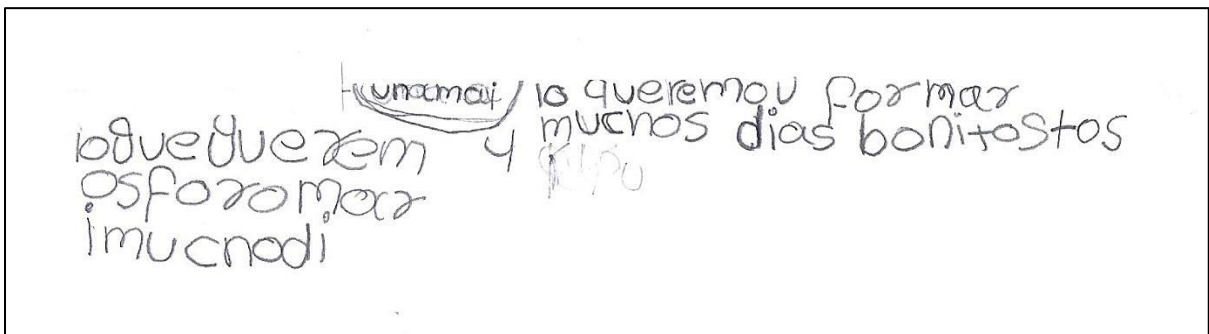 unamai / lo queremou formar
y muchos dias bonitostos
loque querem
osforomar
imucnodi